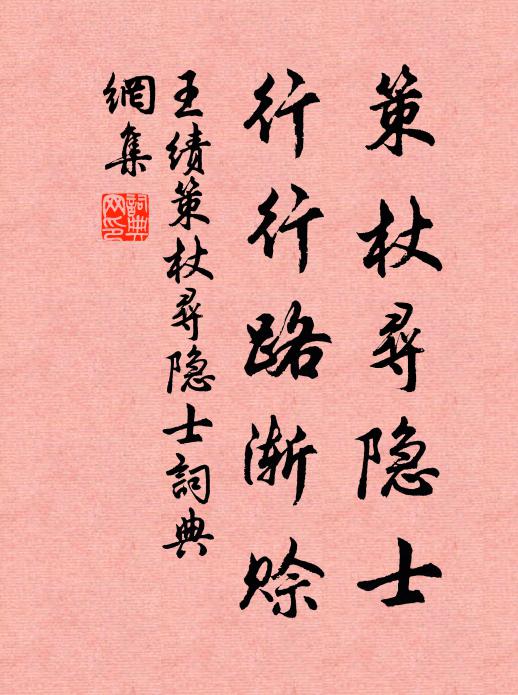 策杖尋隐士
行行路渐赊
王绩策杖尋隐士詞典
網集
詞典网印